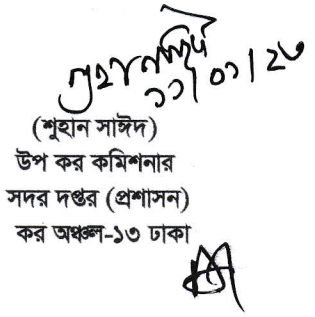 শুহান সাঈদ
১১/০১/২৩
(শুহান সাঈদ)
উপ কর কমিশনার
সদর দপ্তর (প্রশাসন)
কর অঞ্চল-১৩ ঢাকা